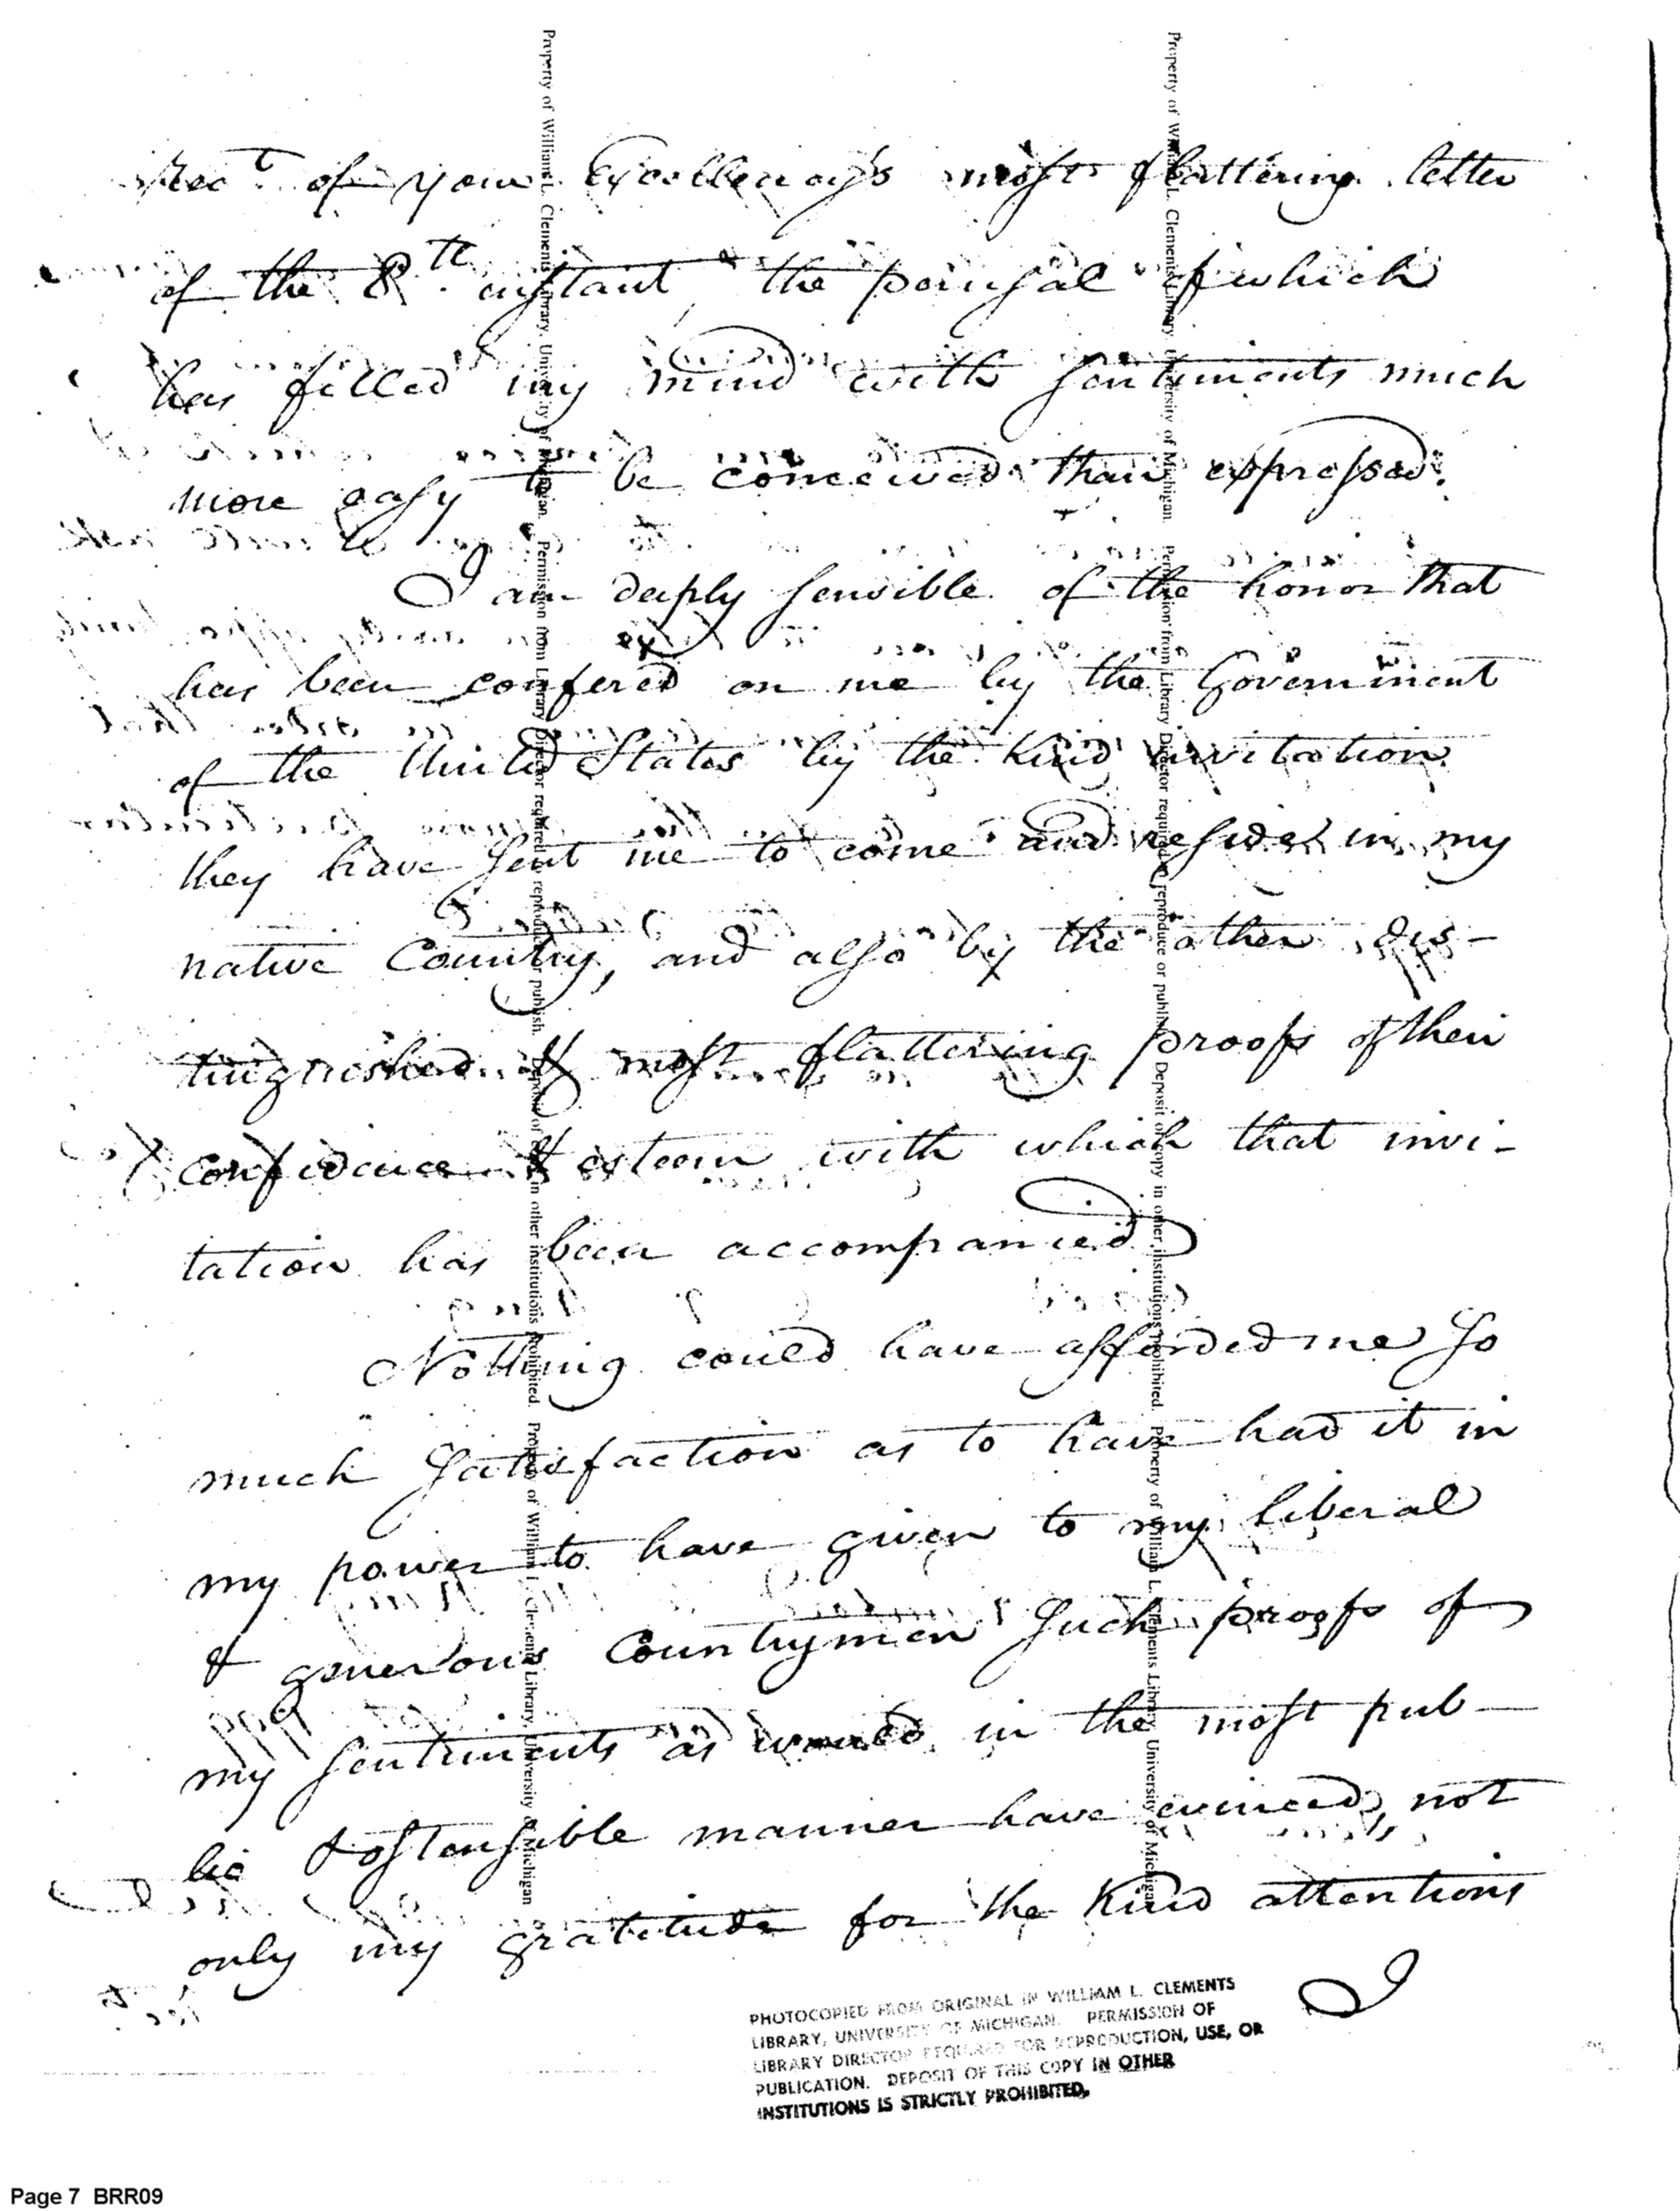 Rec.t of your Excellency's most flattering letter
of the 8.th instant, the perusal of which
has filled my mind with sentiments much
more easy to be conceived than expressed.
I am deeply sensible of the honor that
has been confered on me by the Government
of the United States by the kind invitation
they have sent me to come and reside in my
native Country, and also by the other dis-
tinguished & most flattering proofs of their
confidence & esteem with which that invi-
tation has been accompanied
Nothing could have afforded me so
much satisfaction as to have had it in
my power to have given to my liberal
& generous Countrymen such proofs of
my sentiments as would in the most pub-
lic & ostensible manner have evinced, not
only my gratitude for the kind attentions
PHOTOCOPIED FROM ORIGINAL IN WILLIAM L. CLEMENTS
LIBRARY, UNIVERSITY OF MICHIGAN. PERMISSION OF
LIBRARY DIRECTOR REQUIRED FOR REPRODUCTION, USE, OR
PUBLICATION. DEPOSIT OF THIS COPY IN OTHER
INSTITUTIONS IS STRICTLY PROHIBITED.
Property of William L. Clements Library, University of Michigan. Permission from Library Director required to reproduce or publish. Deposit of copy in other institutions prohibited. Property of William L. Clements Library, University of Michigan
Property of William L. Clements Library, University of Michigan. Permission from Library Director required to reproduce or publish. Deposit of copy in other institutions prohibited. Property of William L. Clements Library, University of Michigan
Page 7 BRR09